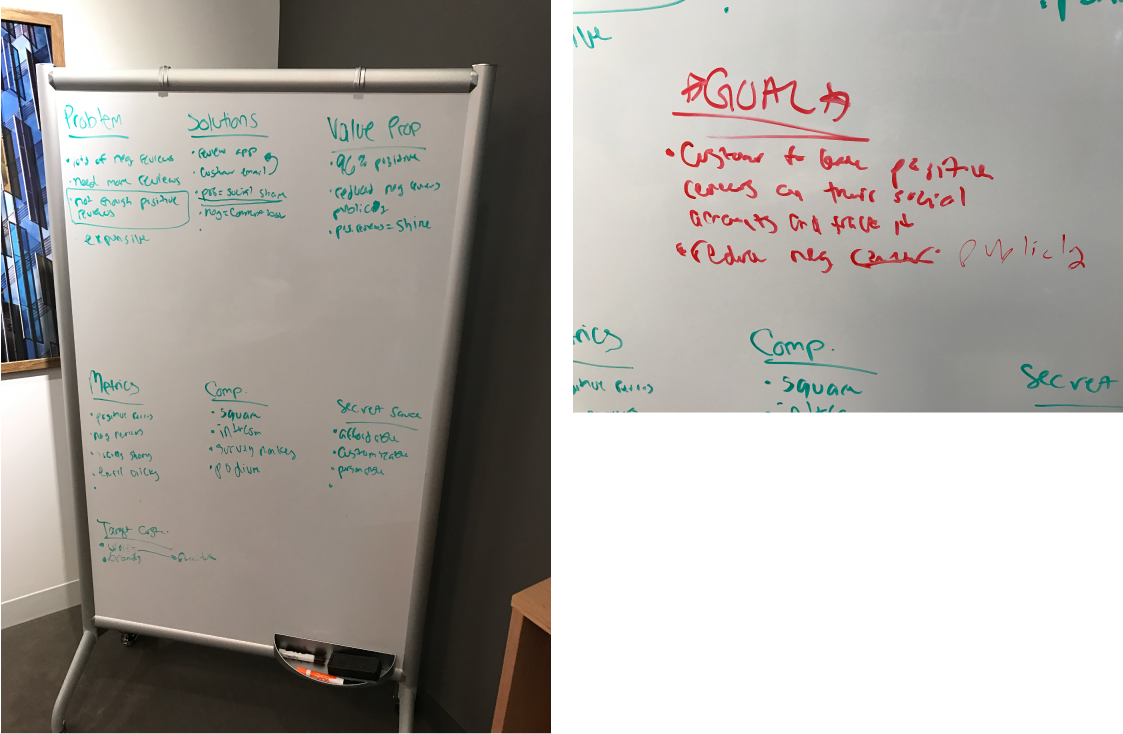 Problem
• lots of neg reviews
• need more reviews
• not enough positive
reviews
expensive
Solutions
• review app
• customer email
• pos = social share
• neg =
Value Prop
• 96% positive
• reduced neg reviews
publicly
• pos reviews = shine
Metrics
• positive
• neg reviews
•
• email clicks
Comp.
• square
• intercom
• survey monkey
• podium
Secret Sauce
• affordable
• customizable
•
Target Cust.
•
• brands
GOAL
• Customer to leave positive
on their social
accounts and track it
• reduce neg publicly
rics
Comp.
• square
Secret